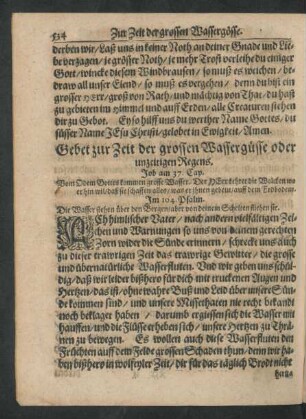 534 Zur Zeit der grossen Wassergösse.
derben wir/ Laß uns in keiner Noth an deiner Gnade und Lie-
be verzagen/ je grösser Noth/ je mehr Trost verleihe du einiger
Gott/ wincke diesem Windbrausen/ so muß es weichen/ be-
draw all unser Elend/ so muß es vergehen/ denn du bist ein
grosser HErr/ groß von Rath/ und mächtig von That/ du hast
zu gebieten im Himmel und auff Erden/ alle Creaturen stehen
dir zu Gebot. Ey so hilff uns du werther Name Gottes/ du
süsser Name JEsu Christi/ gelobet in Ewigkeit/ Amen.
Gebet zur Zeit der grossen Wassergüsse oder
unzeitigen Regens.
Job am 37. Cap.
Vom Odem Gottes kommen grosse Wasser. Der HErr kehret die Wolcken wo
er hin wil/ daß sie schaffen alles/ was er ihnen gebeut/ auff dem Erdboden.
Im 104. Psalm.
Die Wasser stehen über den Bergen/ aber von deinem Schelten fliehen sie.
himlischer Vater/ nach andern vielfältigen Zei-
chen und Warnungen so uns von deinem gerechten
Zorn wider die Sünde erinnern/ schreck uns auch
zu dieser trawrigen Zeit das trawrige Gewitter/ die grosse
und übernatürliche Wasserfluten. Und wir geben uns schül-
dig/ daß wir leider bißhero für dich mit truckenen Augen und
Hertzen/ das ist/ ohne wahre Buß und Leid über unsere Sün-
de kommen sind/ und unsere Missethaten nie recht bekandt
noch beklaget haben/ darumb ergiessen sich die Wasser mit
hauffen/ und die Flüsse erheben sich/ unsere Hertzen zu Thrä-
nen zu bewegen. Es wollen auch diese Wasserfluten den
Früchten auff dem Felde grossen Schaden thun/ denn wir ha-
ben bißhero in wolfeyler Zeit/ dir für das täglich Brodt nicht